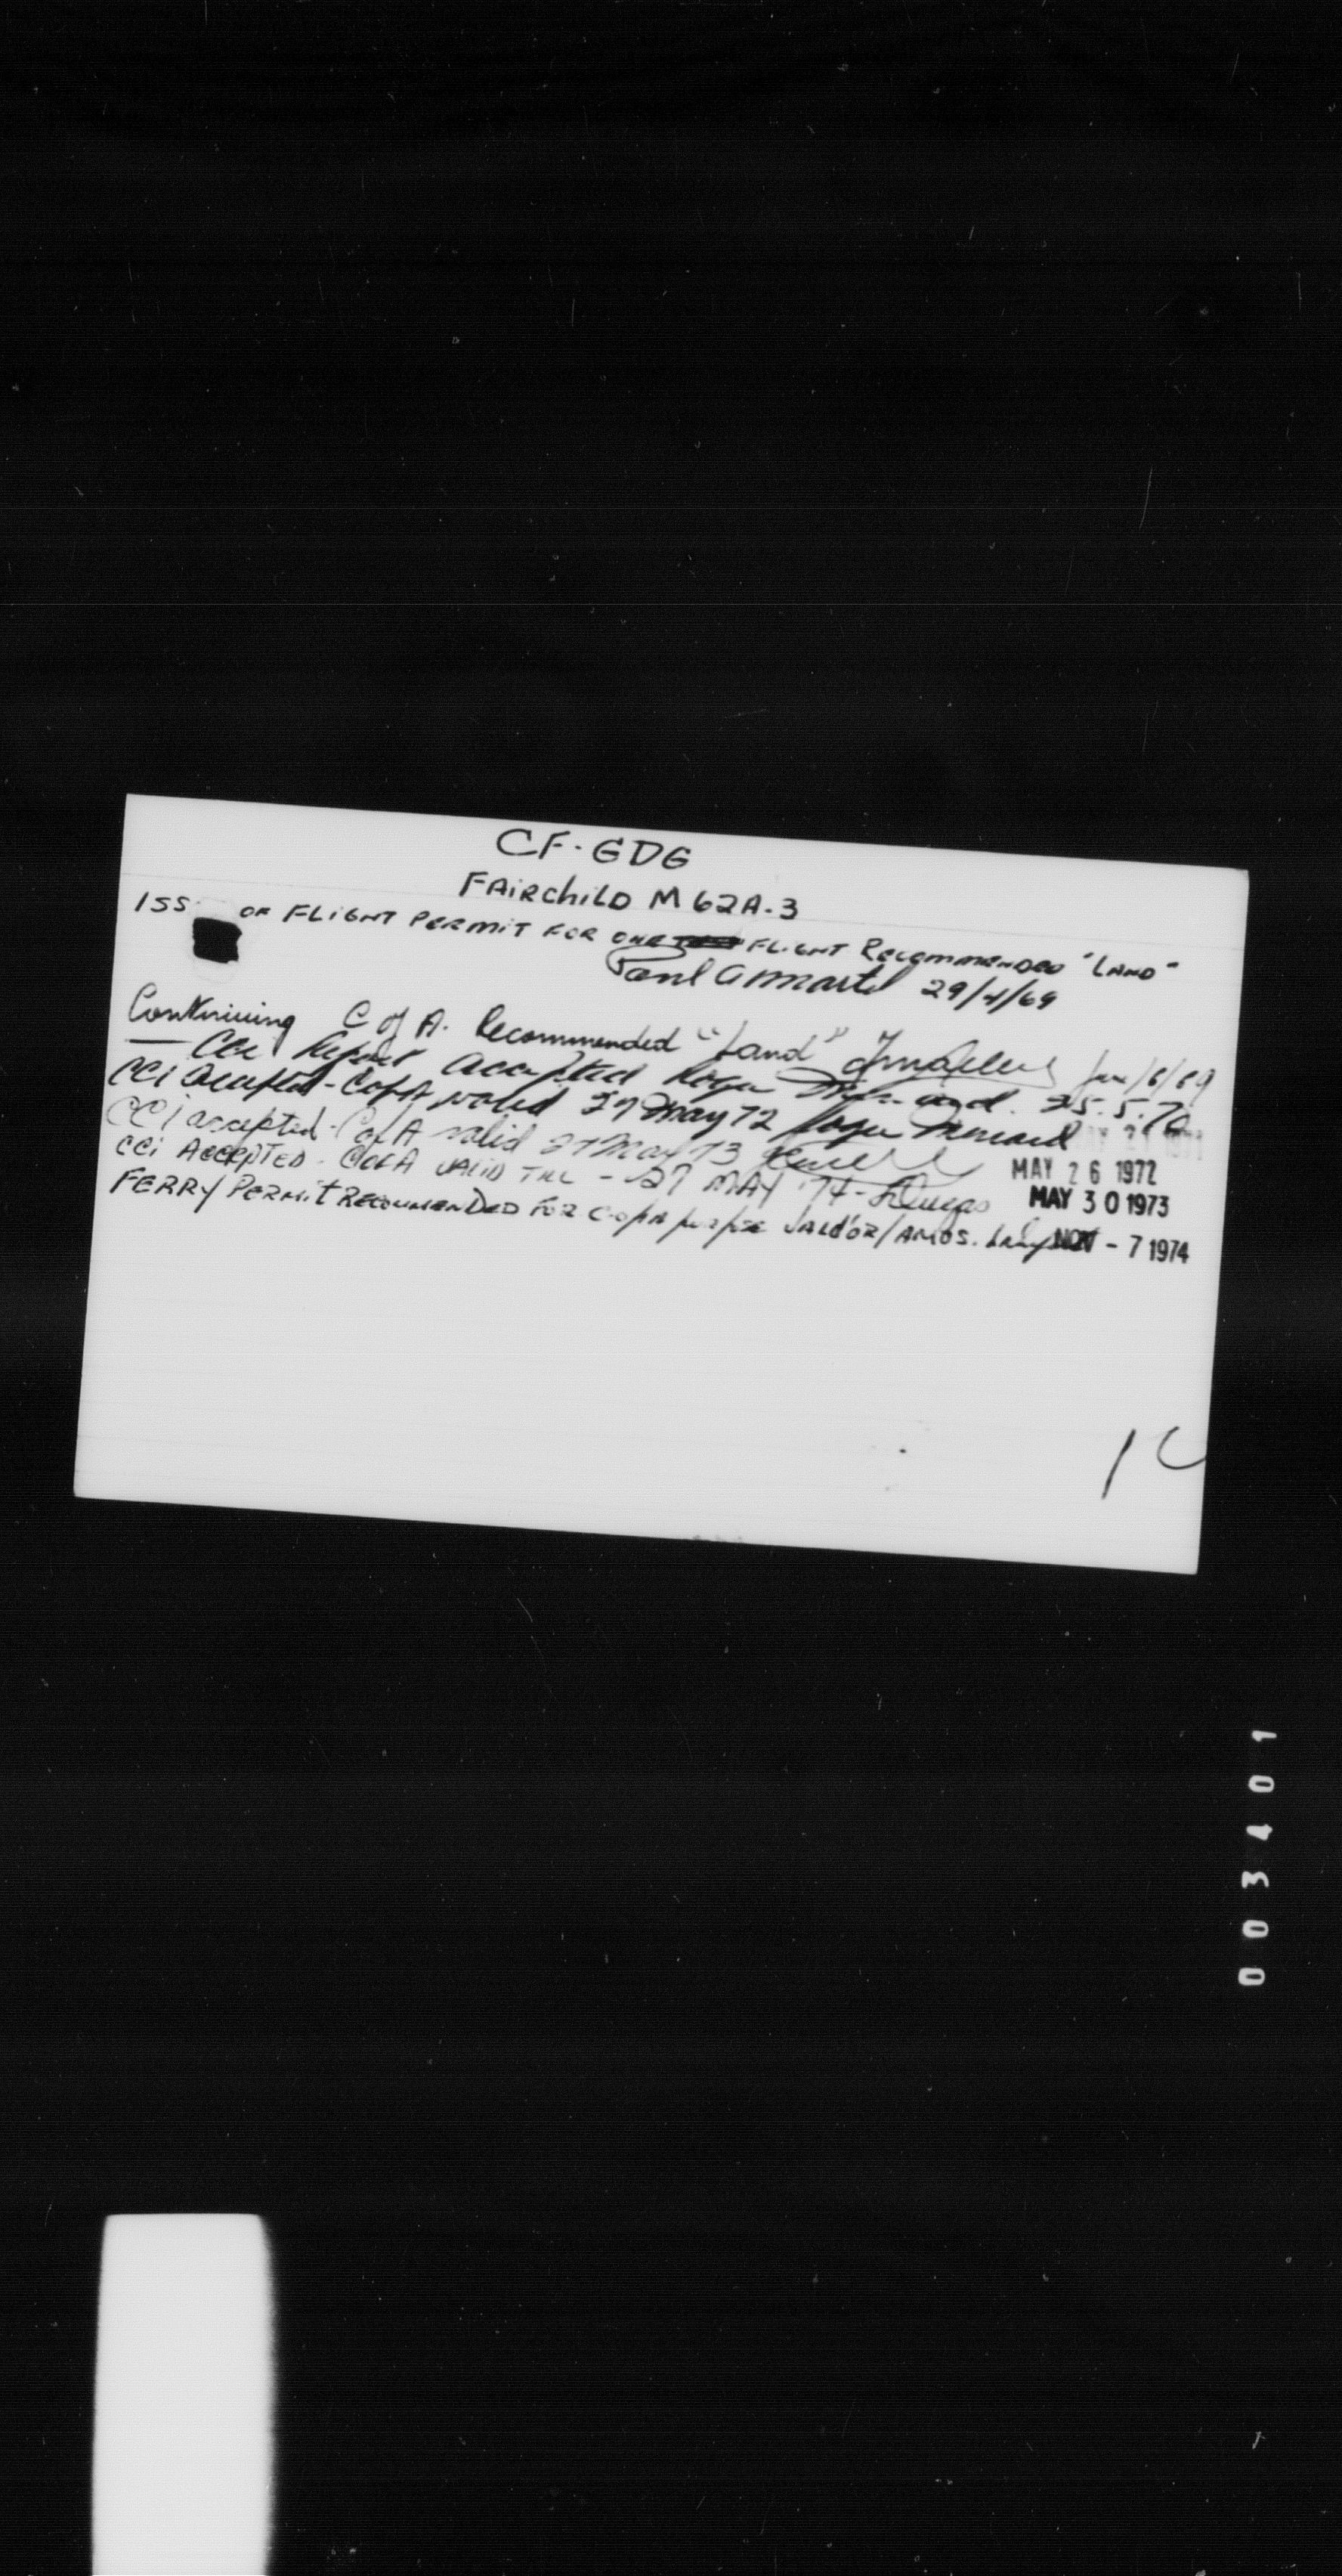 CF-GDG
FAIRCHILD M62A-3
ISS OF FLIGHT PERMIT FOR ONE FLIGHT RECOMMENDED "LAND"
Paul A Martel 29/4/69
Continuing C of A. Recommended "Land" /6/69
— CCI Report accepted Roger 25.5.70
CCI accepted - C of A valid 27 May 72 Roger
CCI accepted - C of A valid 27 May 73 MAY 26 1972
CCI ACCEPTED - C of A VALID TILL - 27 MAY 74 - MAY 30 1973
FERRY PERMIT RECOMMENDED FOR C of A purpose VALD'OR/AMOS. NOV - 7 1974
003401